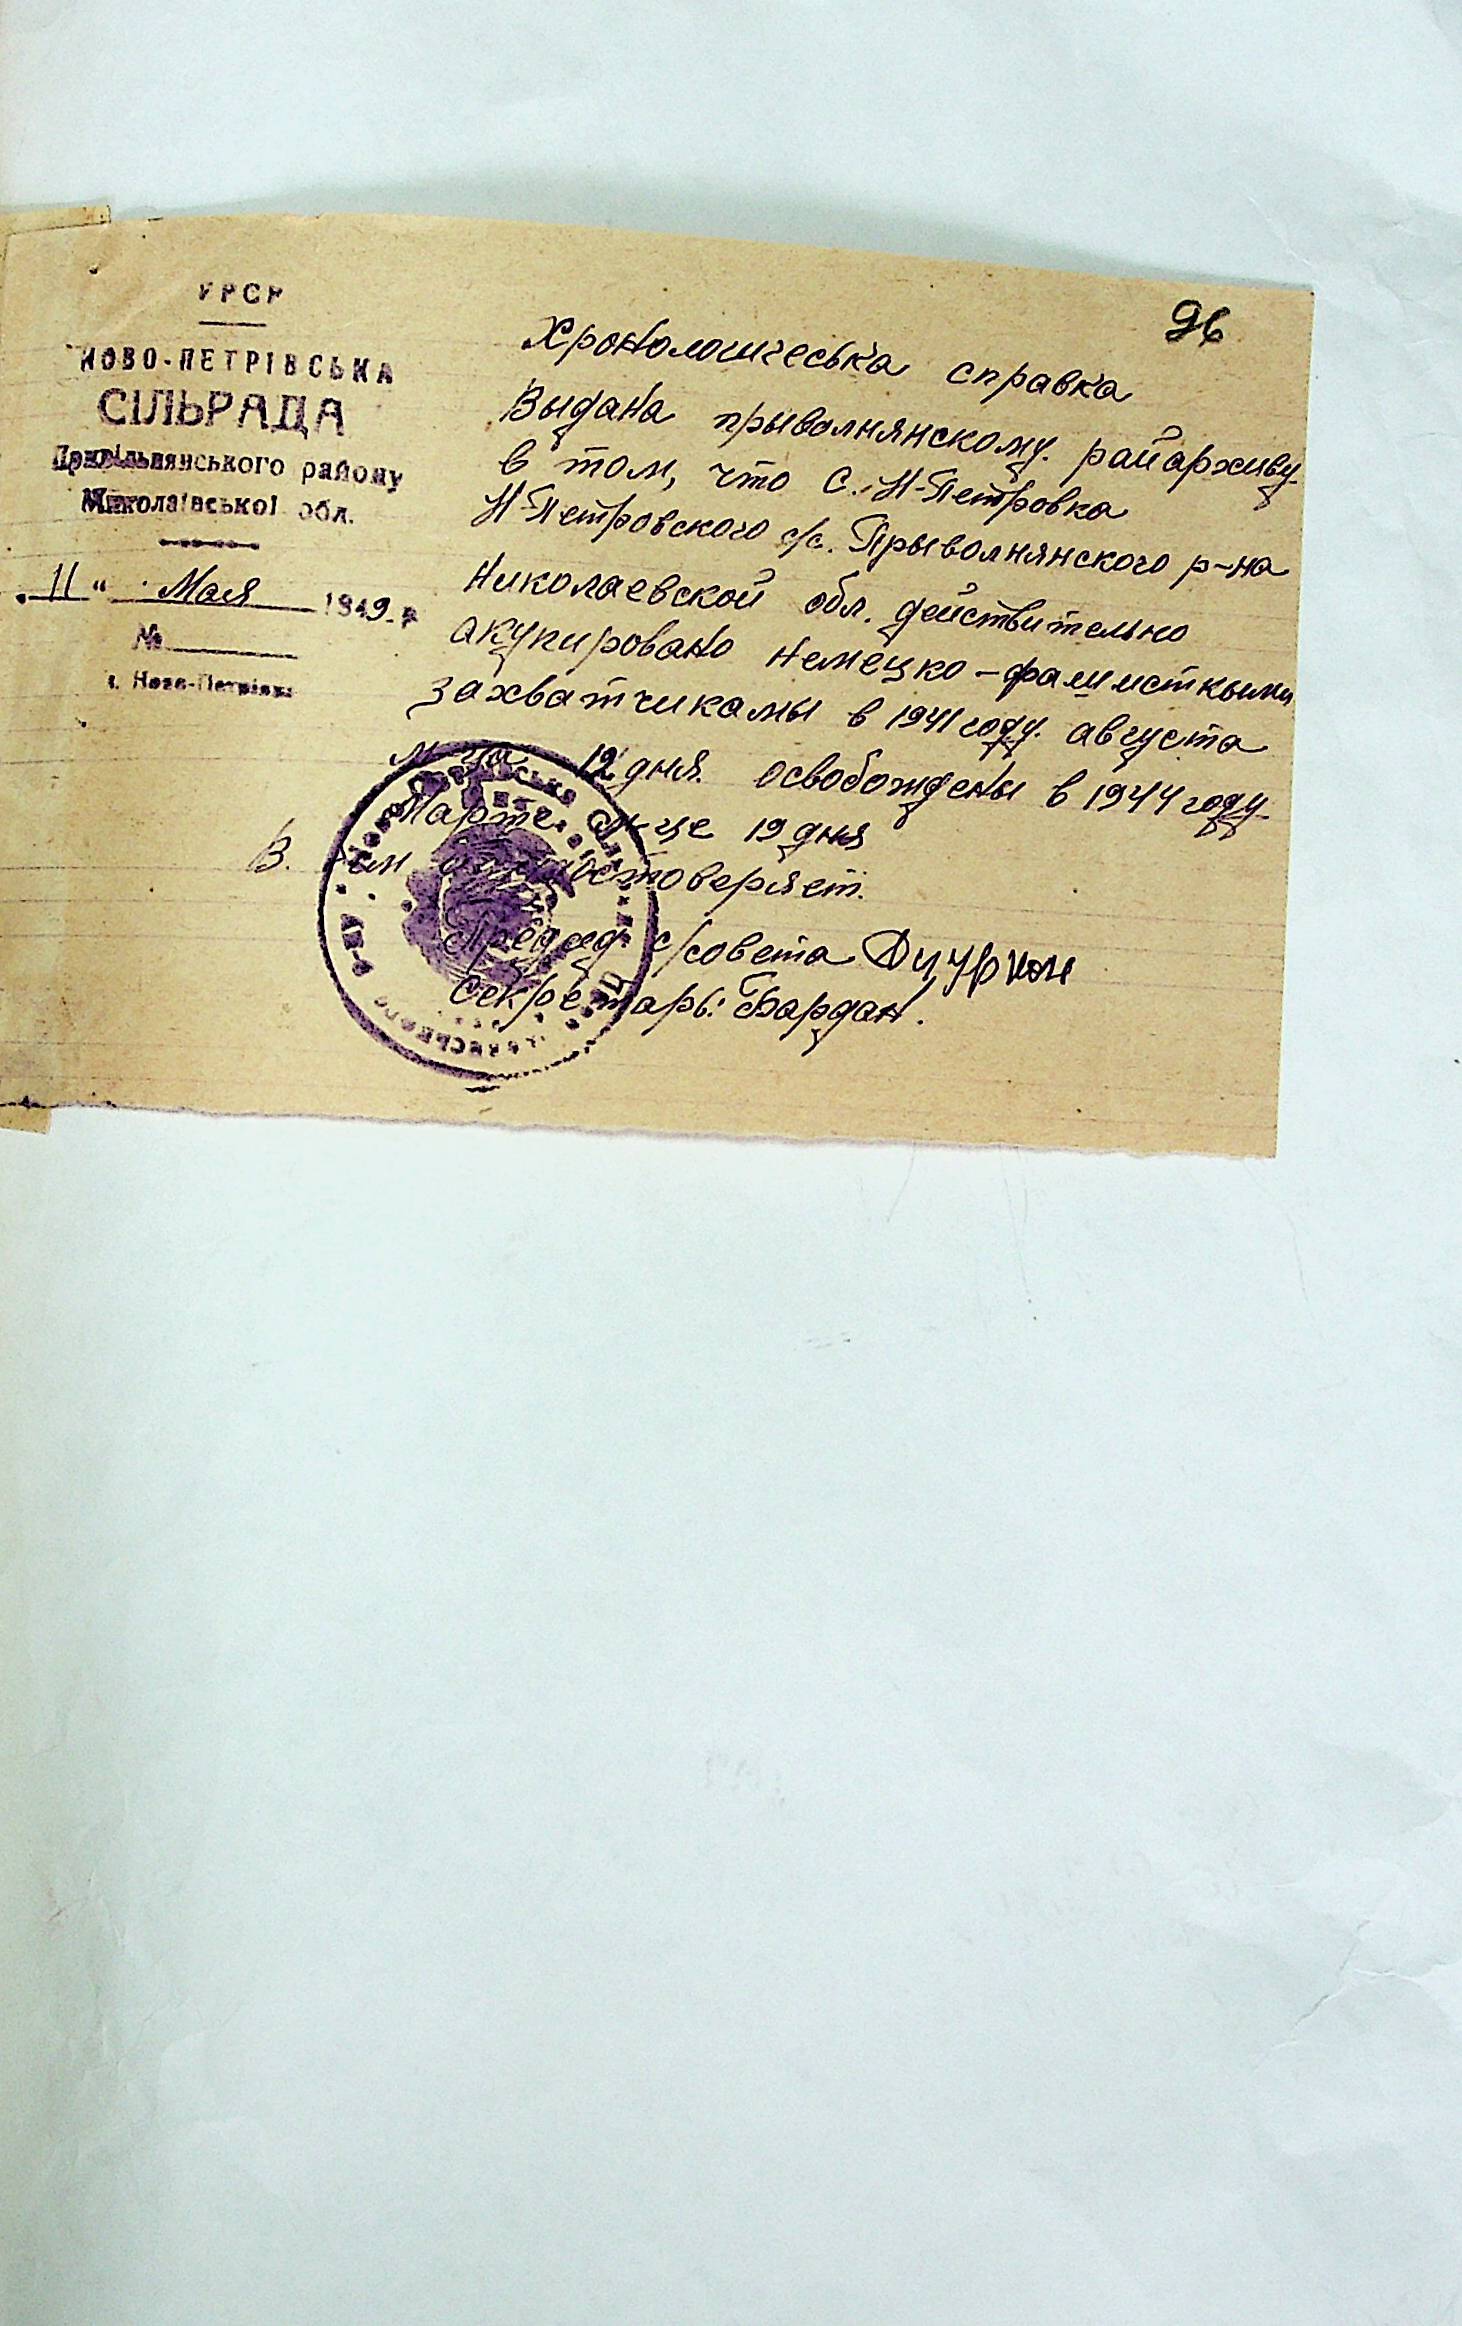 УРСР
НОВО-ПЕТРІВСЬКА
СІЛЬРАДА
Привільнянського району
Миколаївської обл.
„11“ Мая 1949 р
№
с. Ново-Петрівка
96
Хронологичеська справка
Выдана прыволнянскому райархиву
в том, что с. Н-Петровка
Н-Петровского с/с. Прыволнянского р-на
Николаевской обл. действительно
акупировано немецко-фашисткыми
захватчикамы в 1941 году августа
м-ца 12 дня освобождены в 1944 году
Марте м-це 19 дня
В. чем удостоверяет.
Председ с/совета
Секретарь: Бардан.